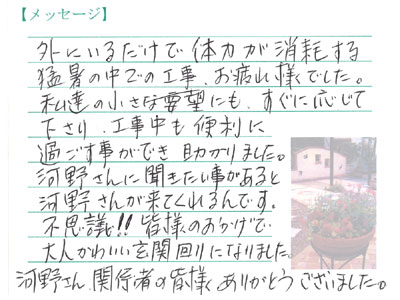 【メッセージ】
外にいるだけで体力が消耗する
猛暑の中での工事、お疲れ様でした。
私達の小さな要望にも、すぐに応じて
下さり、工事中も便利に
過ごす事ができ助かりました。
河野さんに聞きたい事があると
河野さんが来てくれるんです。
不思議!!皆様のおかげで
大人かわいい玄関回りになりました。
河野さん、関係者の皆様ありがとうございました。